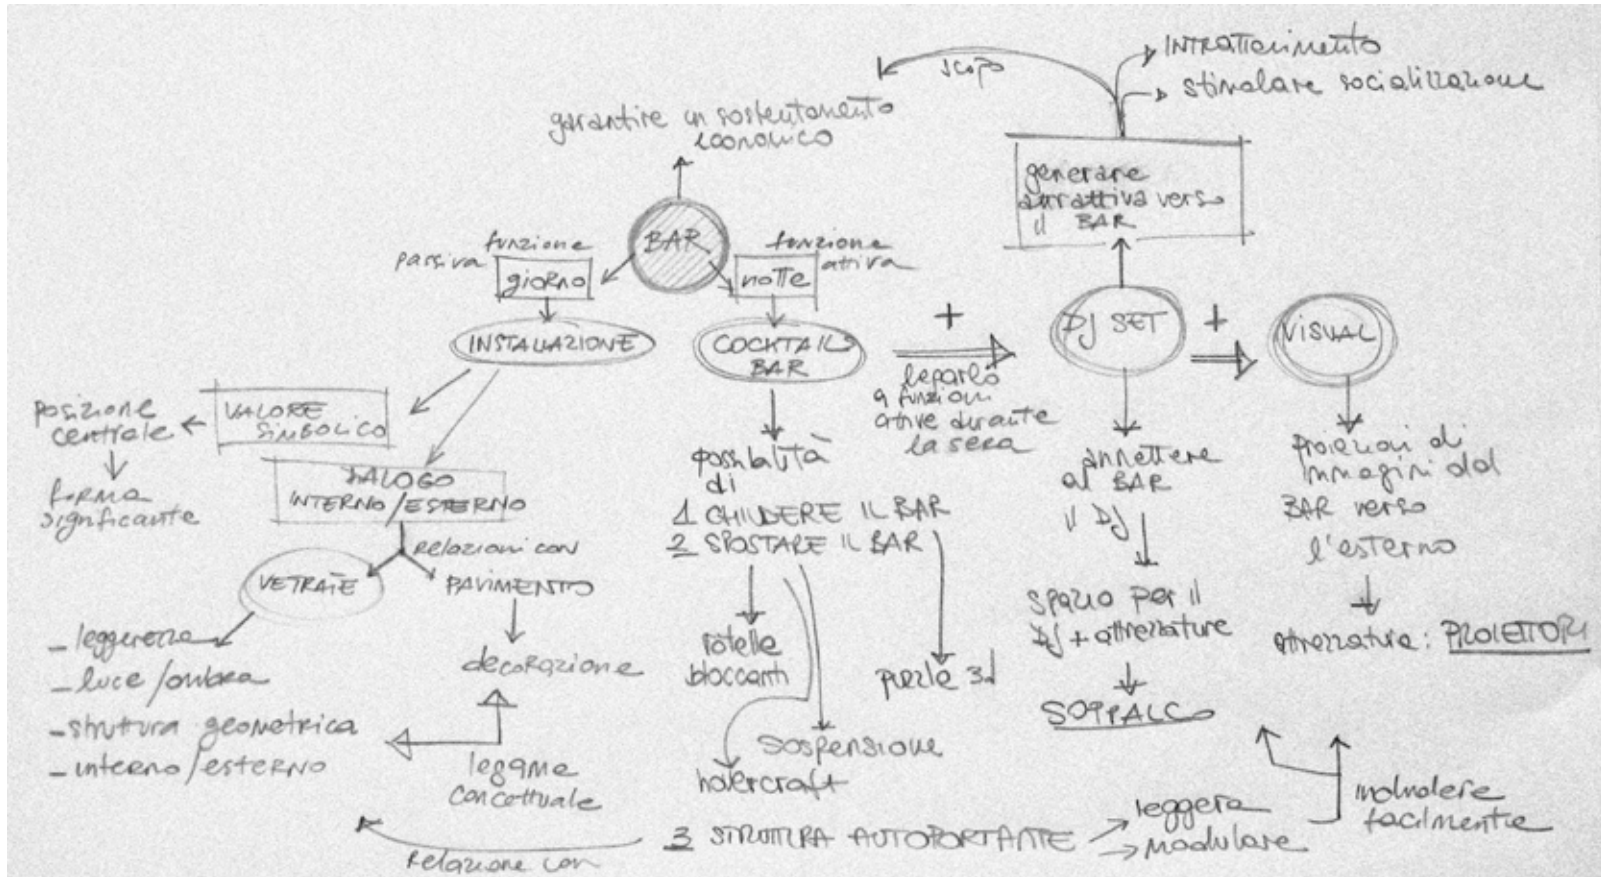 INTRATTENIMENTO
stimolare socializzazione
scopo
garantire un sostentamento
economico
generare
attrattiva verso
il BAR
BAR
funzione
passiva
giorno
funzione
attiva
notte
INSTALLAZIONE
COCKTAIL
BAR
+
DJ SET
+
VISUAL
legarlo
a funzioni
attive durante
la sera
VALORE
SIMBOLICO
posizione
centrale
forma
significante
DIALOGO
INTERNO/ESTERNO
relazioni con
VETRATE
PAVIMENTO
- leggerezza
- luce/ombra
- struttura geometrica
- interno/esterno
decorazione
legame
concettuale
possibilità
di
1 CHIUDERE IL BAR
2 SPOSTARE IL BAR
rotelle
bloccanti
puzzle 3d
sospensione
hovercraft
annettere
al BAR
il DJ
spazio per il
DJ + attrezzature
SOPPALCO
proiezioni di
immagini dal
BAR verso
l'esterno
attrezzatura: PROIETTORI
3 STRUTTURA AUTOPORTANTE
leggera
modulare
facilmente
relazione con